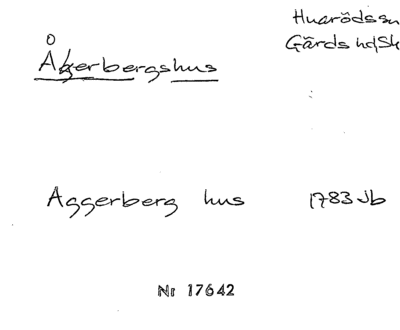 Huarödssn
Gärds hdSk
Åkerbergshus
Aggerberg hus 1783 Jb
Nr 17642